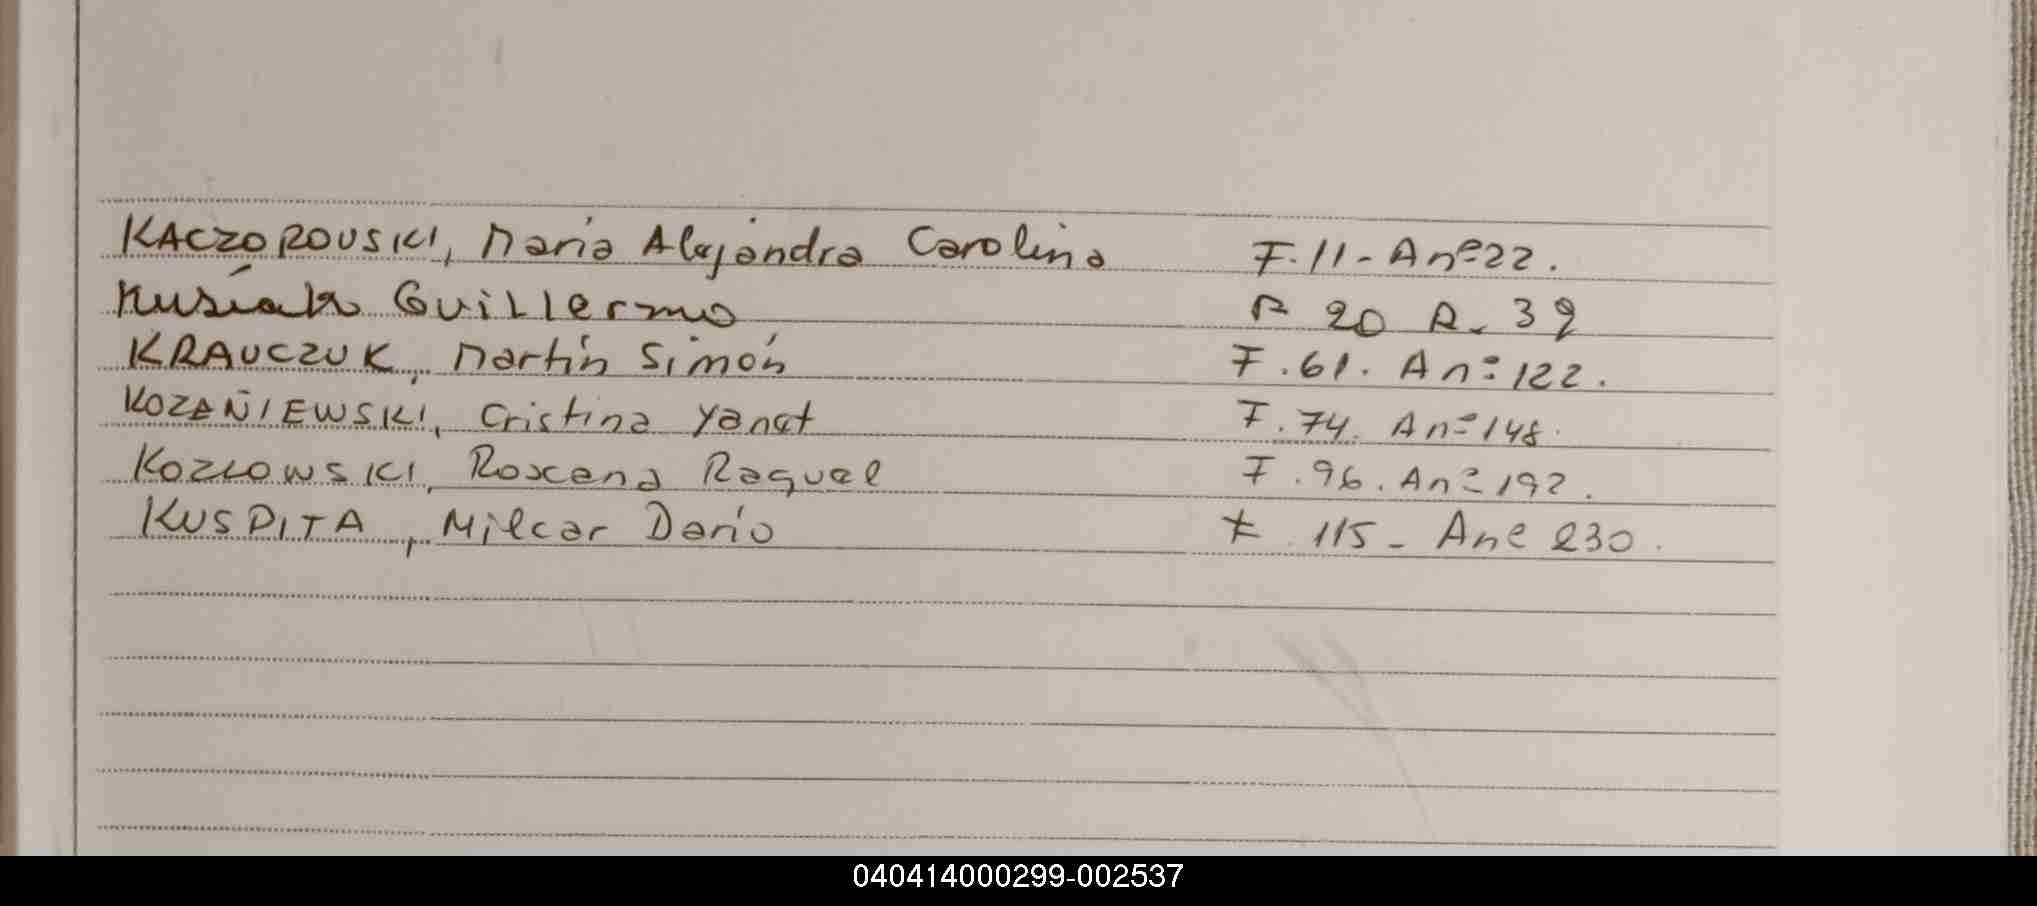 KACZOROUSKI, María Alejandra Carolina F. 11 - A nº 22.
Kusiak Guillermo F 20 A. 39
KRAUCZUK, Martín Simón F. 61. A nº 122.
KOZAÑIEWSKI, Cristina Yanet F. 74. A nº 148.
KOZLOWSKI, Roxana Raquel F. 96. A nº 192.
KUSPITA, Milcar Darío F. 115 - A nº 230.
040414000299-002537